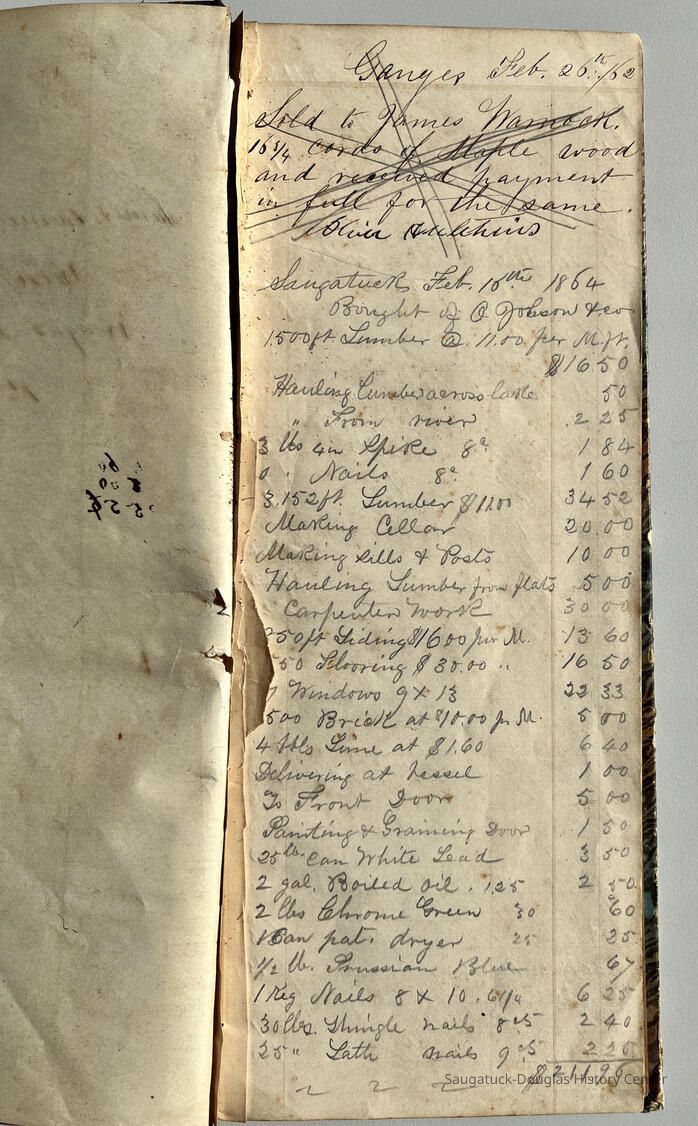 Ganges Feb. 26th /62
Sold to James Warnock.
16 3/4 cords of Maple wood
and received payment
in full for the same.
Hutchins
Saugatuck Feb. 10th 1864
Bought of O Johnson & co
1.500ft Lumber @ 11.00 per M.ft.
$16 50
Hauling Lumber across lake 50
" From river 2 25
3 lbs 4in Spike 8c 1 84
0 Nails 8c 1 60
3.152ft. Lumber $11.00 34 52
Making Cellar 20.00
Making Sills & Posts 10 00
Hauling Lumber from flats 5 00
Carpenter work 30 00
50ft Siding $16 00 per M. 13 60
50 Flooring $30.00 " 16 50
7 Windows 9 X 13 22 33
500 Brick at $10.00 pr M. 5 00
4 bbls Lime at $1.60 6 40
Delivering at vessel 1 00
To Front Door 5 00
Painting & Graining Door 1 50
25lb. Can White Lead 3 50
2 gal. Boiled oil. 1.25 2 50
2 lbs Chrome Green 30 60
1 Can pat. dryer 25 25
1/2 lb. Prussian Blue 67
1 Keg Nails 8 X 10. 6 1/4 6 25
30 lbs. Shingle nails 8 2 40
25 " Lath nails 9 2 25
$211 96
Saugatuck-Douglas History Center